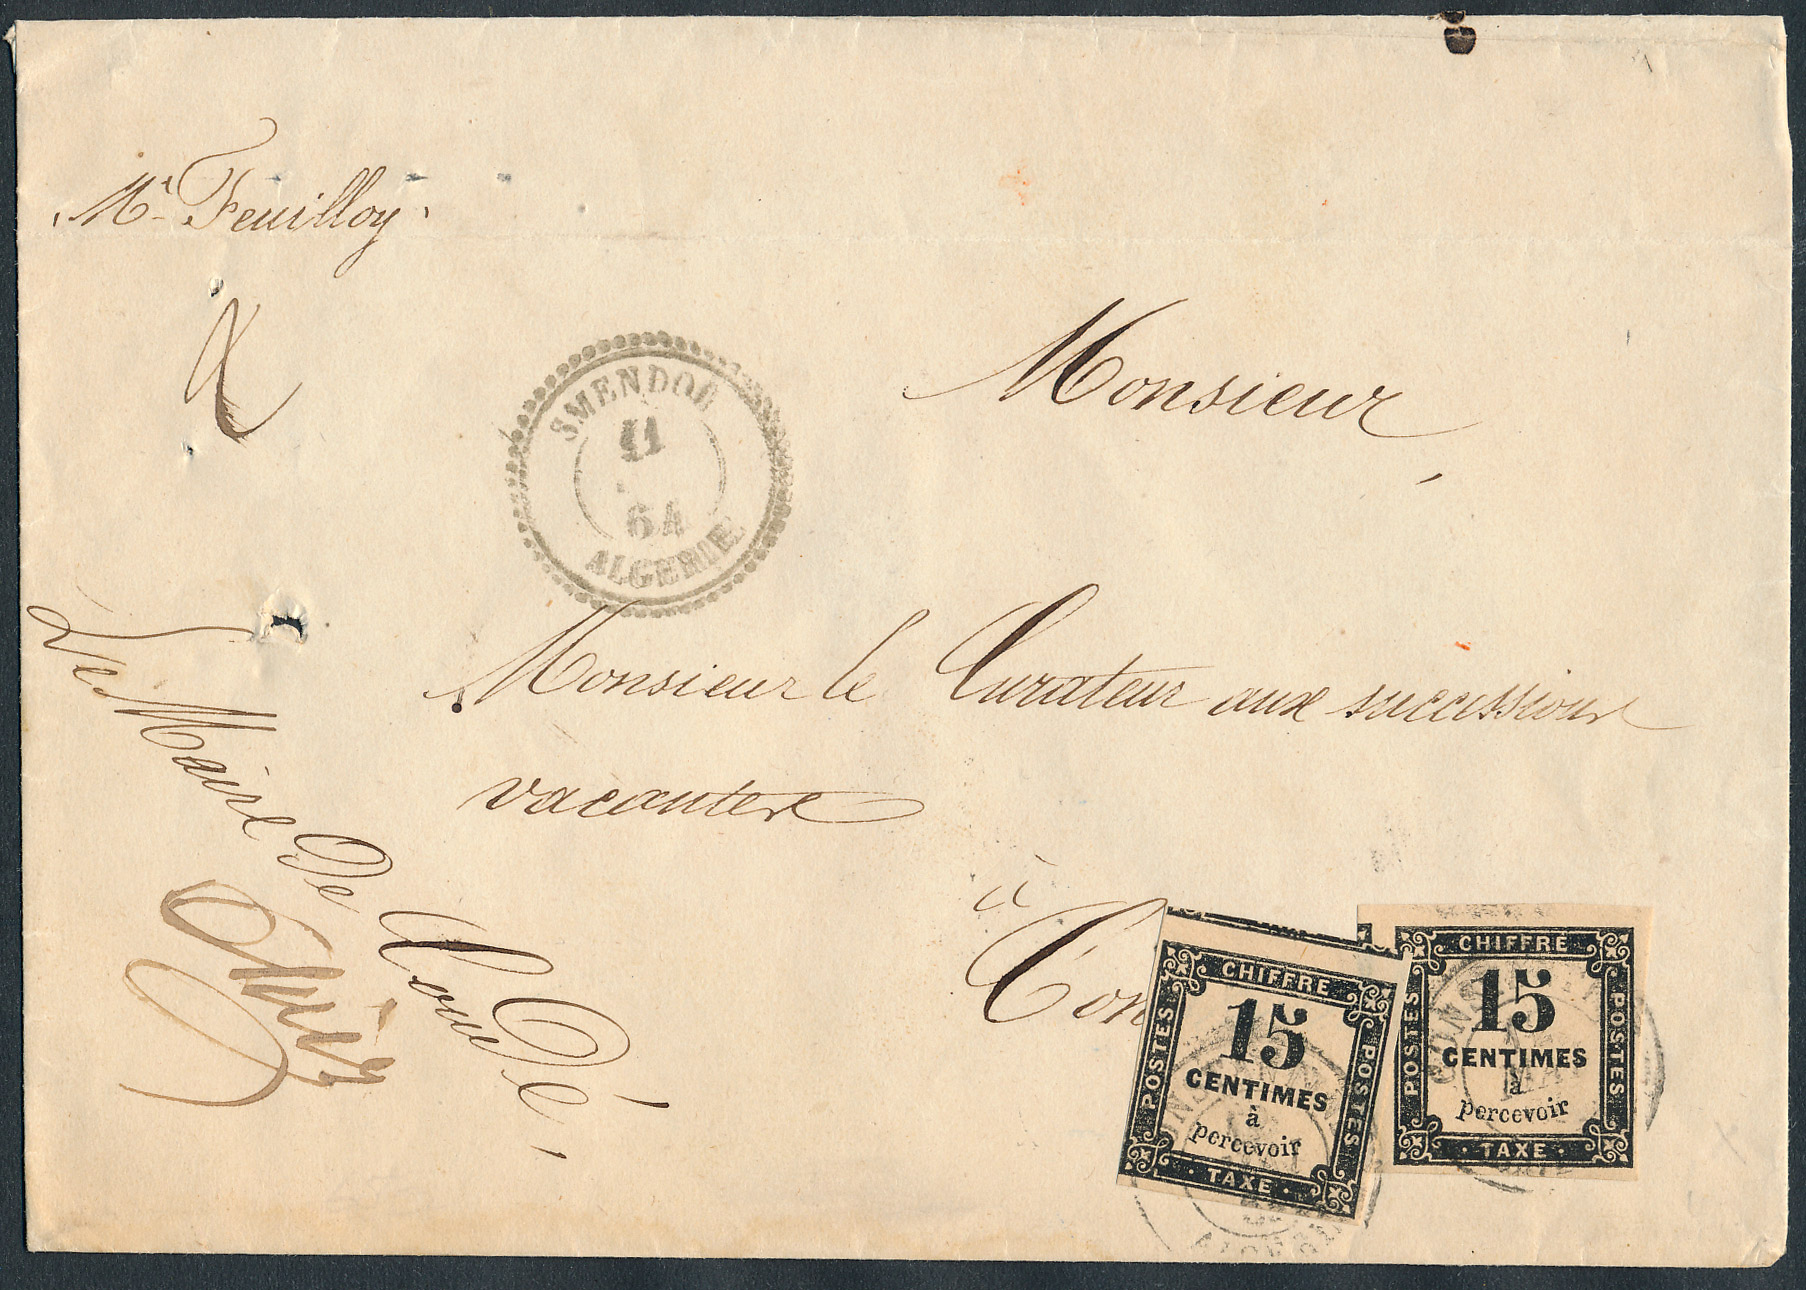 Mr. Feuilloy.
SMENDOU
11
64
ALGERIE
Monsieur,
Monsieur le Curateur aux successions
vacantes
à
Con
Le Maire De Condé,
CHIFFRE
15
CENTIMES
à
percevoir
TAXE
POSTES
POSTES
CHIFFRE
15
CENTIMES
à
percevoir
TAXE
POSTES
POSTES